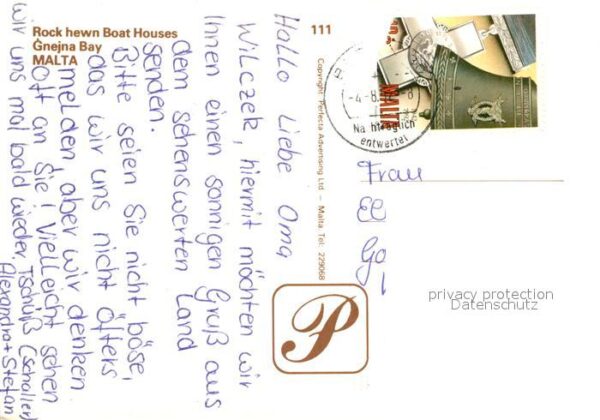 Rock hewn Boat Houses
Ġnejna Bay
MALTA
111
Hallo Liebe Oma
Wilczek, hiermit möchten wir
Ihnen einen sonnigen Gruß aus
dem sehenswerten Land
senden.
Bitte seien Sie nicht böse,
das wir uns nicht öfters
melden, aber wir denken
oft an Sie! Vielleicht sehen
wir uns mal bald wieder, Tschüß (Schaller)
Alexandra + Stefan
Copyright Perfecta Advertising Ltd - Malta Tel: 229068
P
MALTA
-4-8.
Nachträglich
entwertet
Frau
privacy protection
Datenschutz